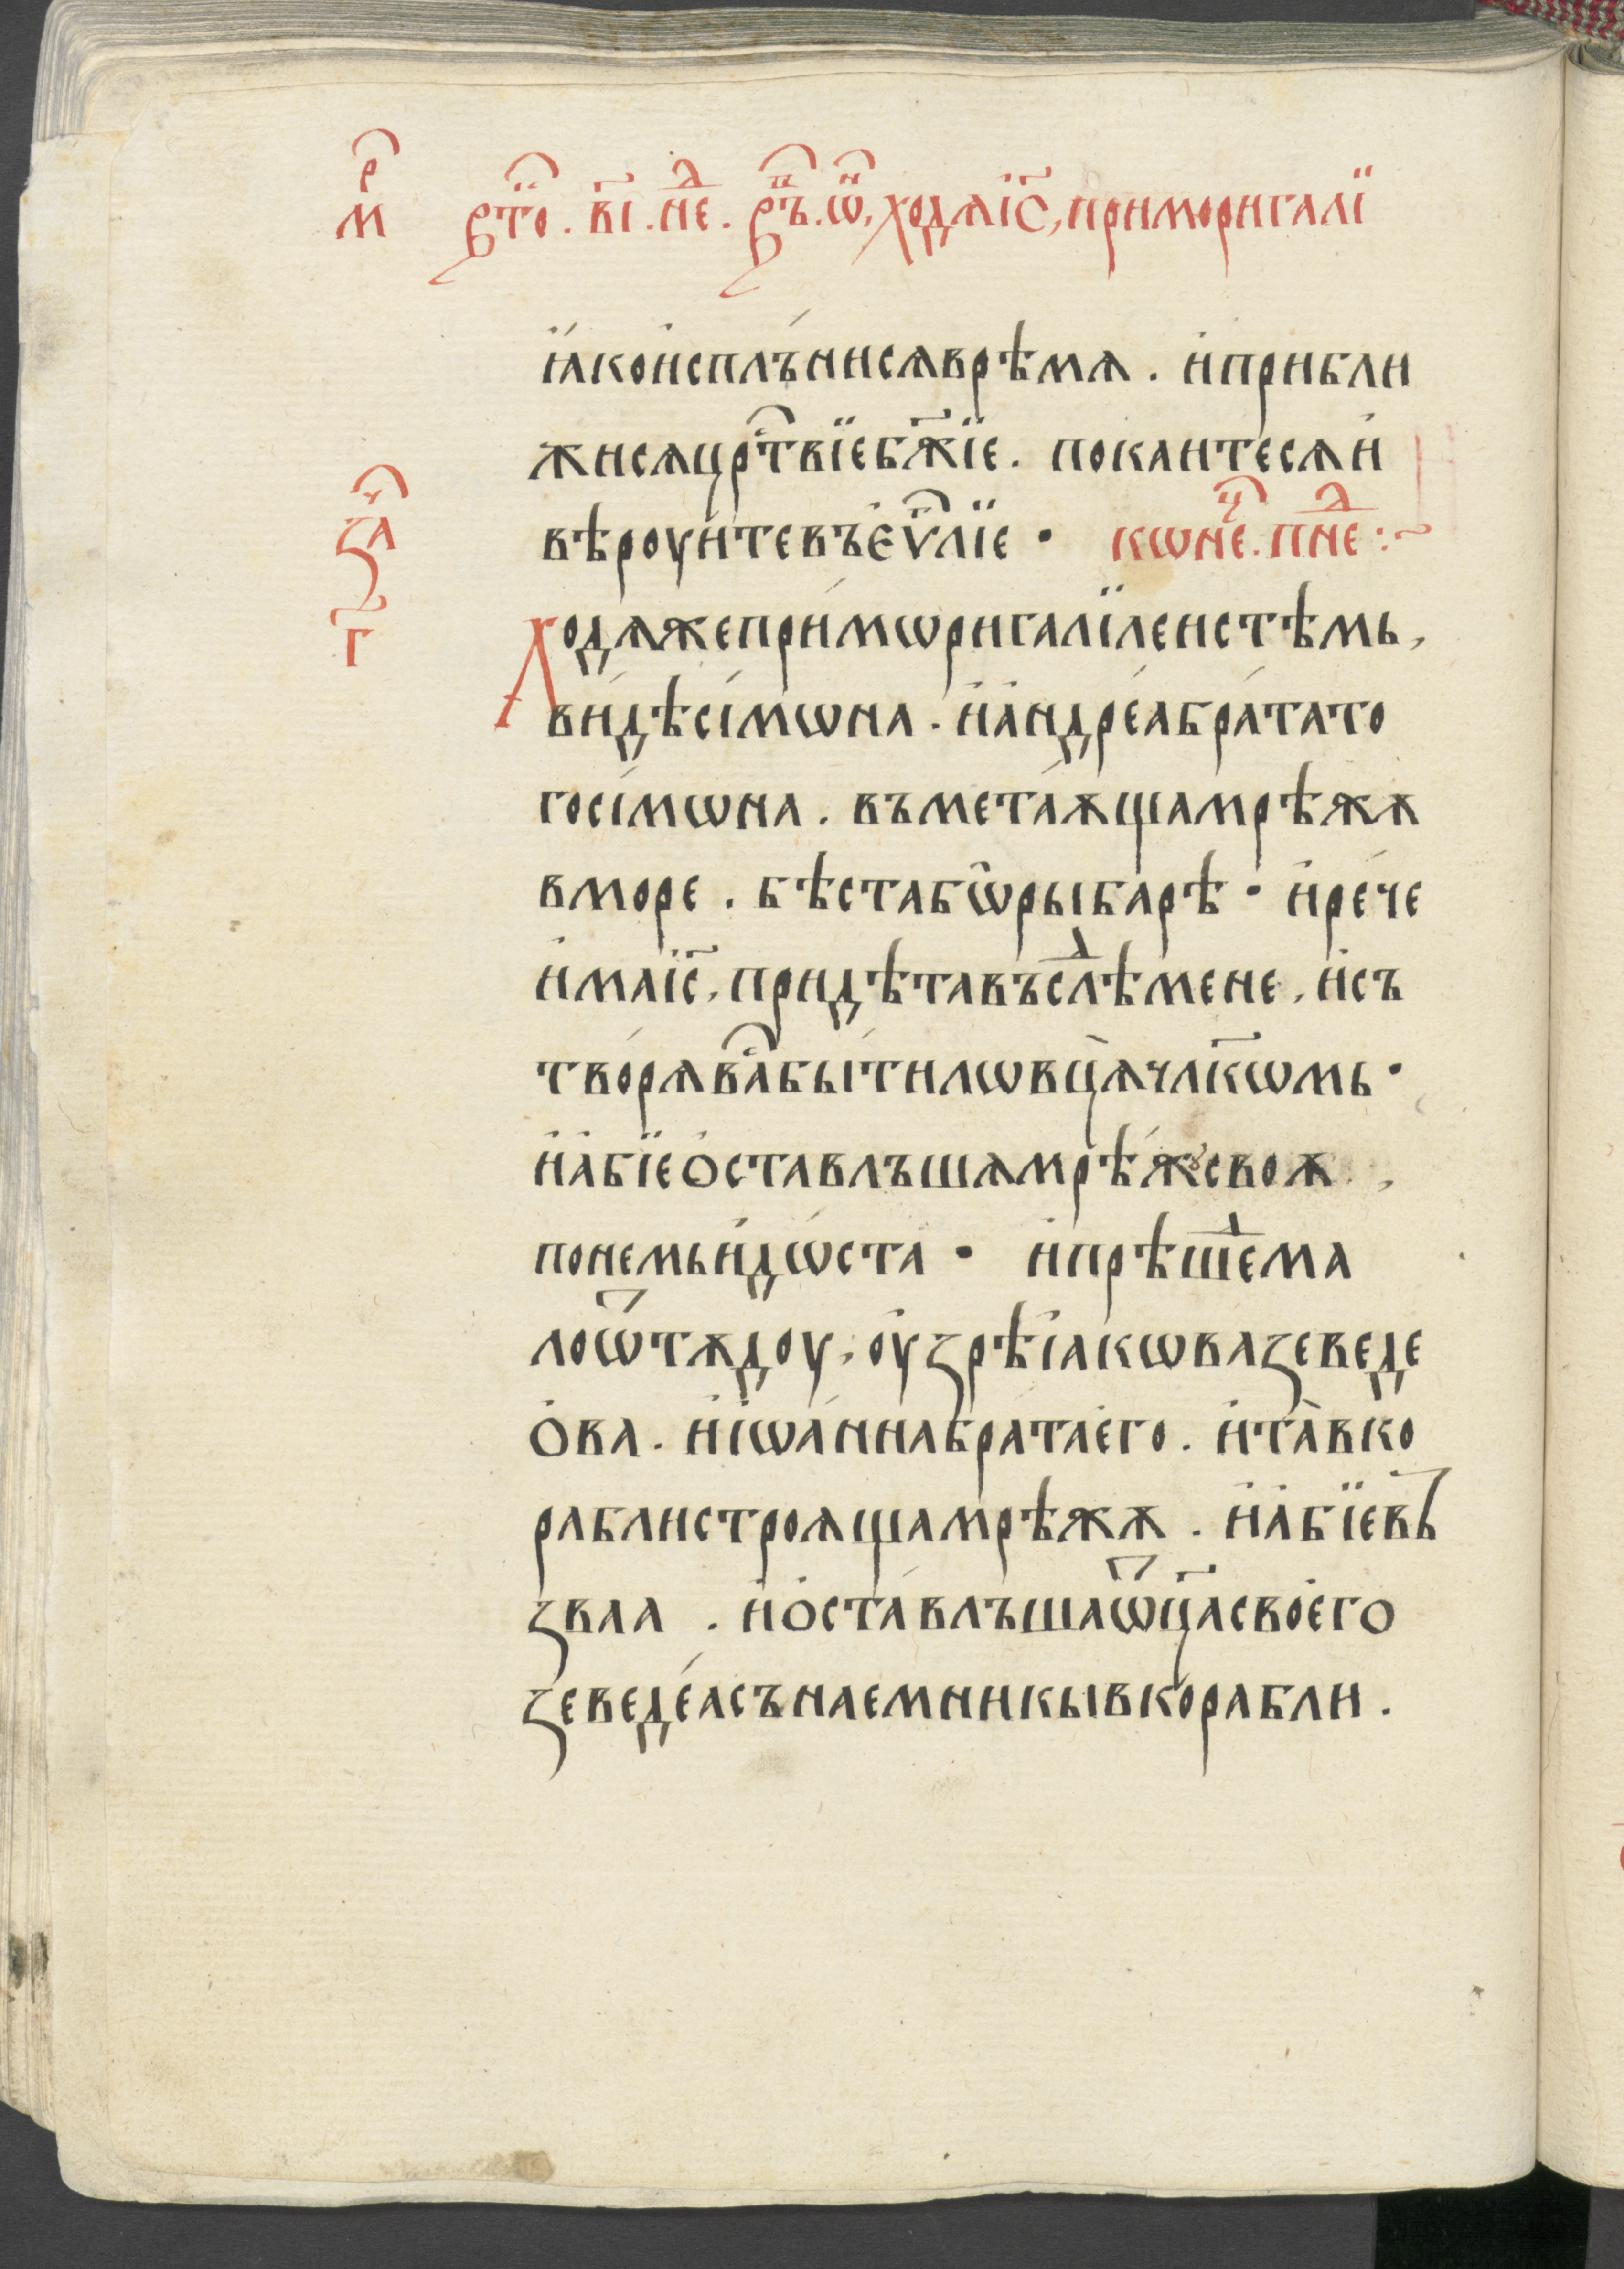 мⷬ҇ вⷡ҇то . в҃і . неⷣ . рⷫ҇ъ . ѿ, ходѧ і҃с, при мори галї
ꙗ́ко и҆сплъ́нисѧ врѣмѧ . и҆ прибли
жисѧ црⷭ҇твїе бж҃їе . покаитесѧ и҆
вѣроуи́те въ є҆ѵⷢ҇лїе · кѡнеⷰ҇ . пнеⷣ :~
заⷱ҇
г҃
Ходѧ же при́ мѡри галїлеистѣмь,
ви́дѣ сі́мѡна . и҆ а҆ндре́а бра́та то
го сі́мѡна . въметаѫща мрѣжѫ
в море . бѣста бѡ рыбарѣ · и҆ ре́че
и҆ма і҃с, придѣта въ слѣⷣ мене, и҆ съ
тво́рѧ ваⷭ҇ бы́ти ловцѧ чл҃кѡмь ·
и҆ а҆бїе ѻ҆ставлъшѧ мрѣ́жѧ своѫ,
по немь и҆дѡ́ста · и҆ прѣшеⷣ ма
ло ѿтѫдоу, оу҆зрѣ і҆акѡва зеведе
ѻ҆ва . и҆ і҆ѡа́нна бра́та е҆го . и҆ та̀ в ко
рабли строѧща мрѣжѫ . и҆ а҆бїе въꙁ
зва ꙗ . и҆ ѻ҆ста́влъша ѿц҃а свое҆го
зеведе́а съ наемникы в корабли .